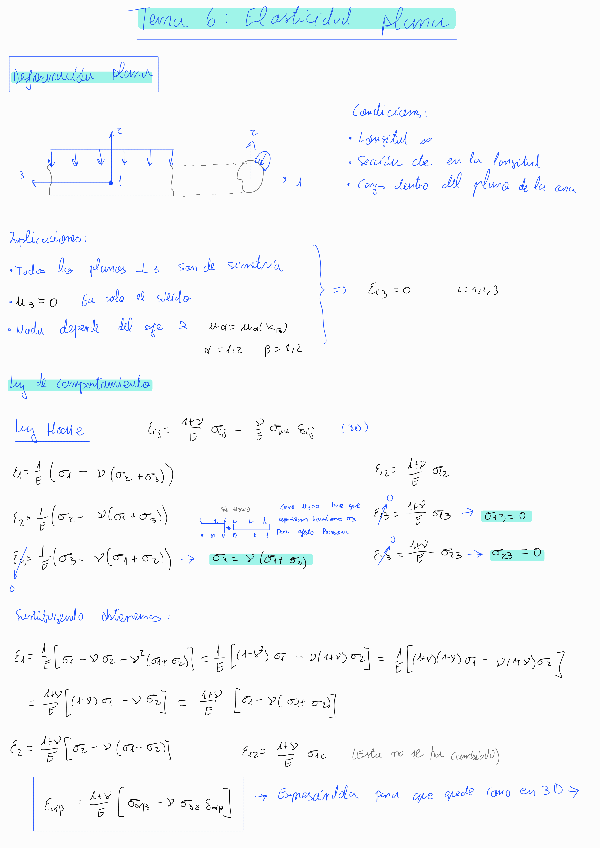 Tema 6: Elasticidad plana
Deformación plana
Condiciones:
• Longitud ∞
• Sección cte. en la longitud
• Cargas dentro del plano de la
2
3
1
2
1
Implicaciones:
• Todos los planos ⊥ 3 son de simetría
• u3 = 0 En todo el sólido
• Nada depende del eje uα = uα(xβ)
α = 1,2 β = 1,2
=> εi3 = 0 i = 1,2,3
Ley de comportamiento
Ley Hooke εij = (1+ν)/E σij − ν/E σkk δij (3D)
ε1 = 1/E (σ1 − ν(σ2 + σ3)) ε12 = (1+ν)/E σ12
ε2 = 1/E (σ2 − ν(σ1 + σ3)) ε13 = (1+ν)/E σ13 → σ13 = 0
0
ε3 = 1/E (σ3 − ν(σ1 + σ2)) → σ3 = ν(σ1 + σ2) ε23 = (1+ν)/E σ23 → σ23 = 0
0 0
Sustituyendo obtenemos:
ε1 = 1/E [σ1 − νσ2 − ν²(σ1 + σ2)] = 1/E [(1−ν²)σ1 − ν(1+ν)σ2] = 1/E [(1+ν)(1−ν)σ1 − ν(1+ν)σ2]
= (1+ν)/E [(1−ν)σ1 − νσ2] = (1+ν)/E [σ1 − ν(σ1 + σ2)]
ε2 = (1+ν)/E [σ2 − ν(σ1 + σ2)] ε12 = (1+ν)/E σ12 (Esta no se ha cambiado)
εαβ = (1+ν)/E [σαβ − ν σγγ δαβ] → Expresándola para que quede como en 3D →